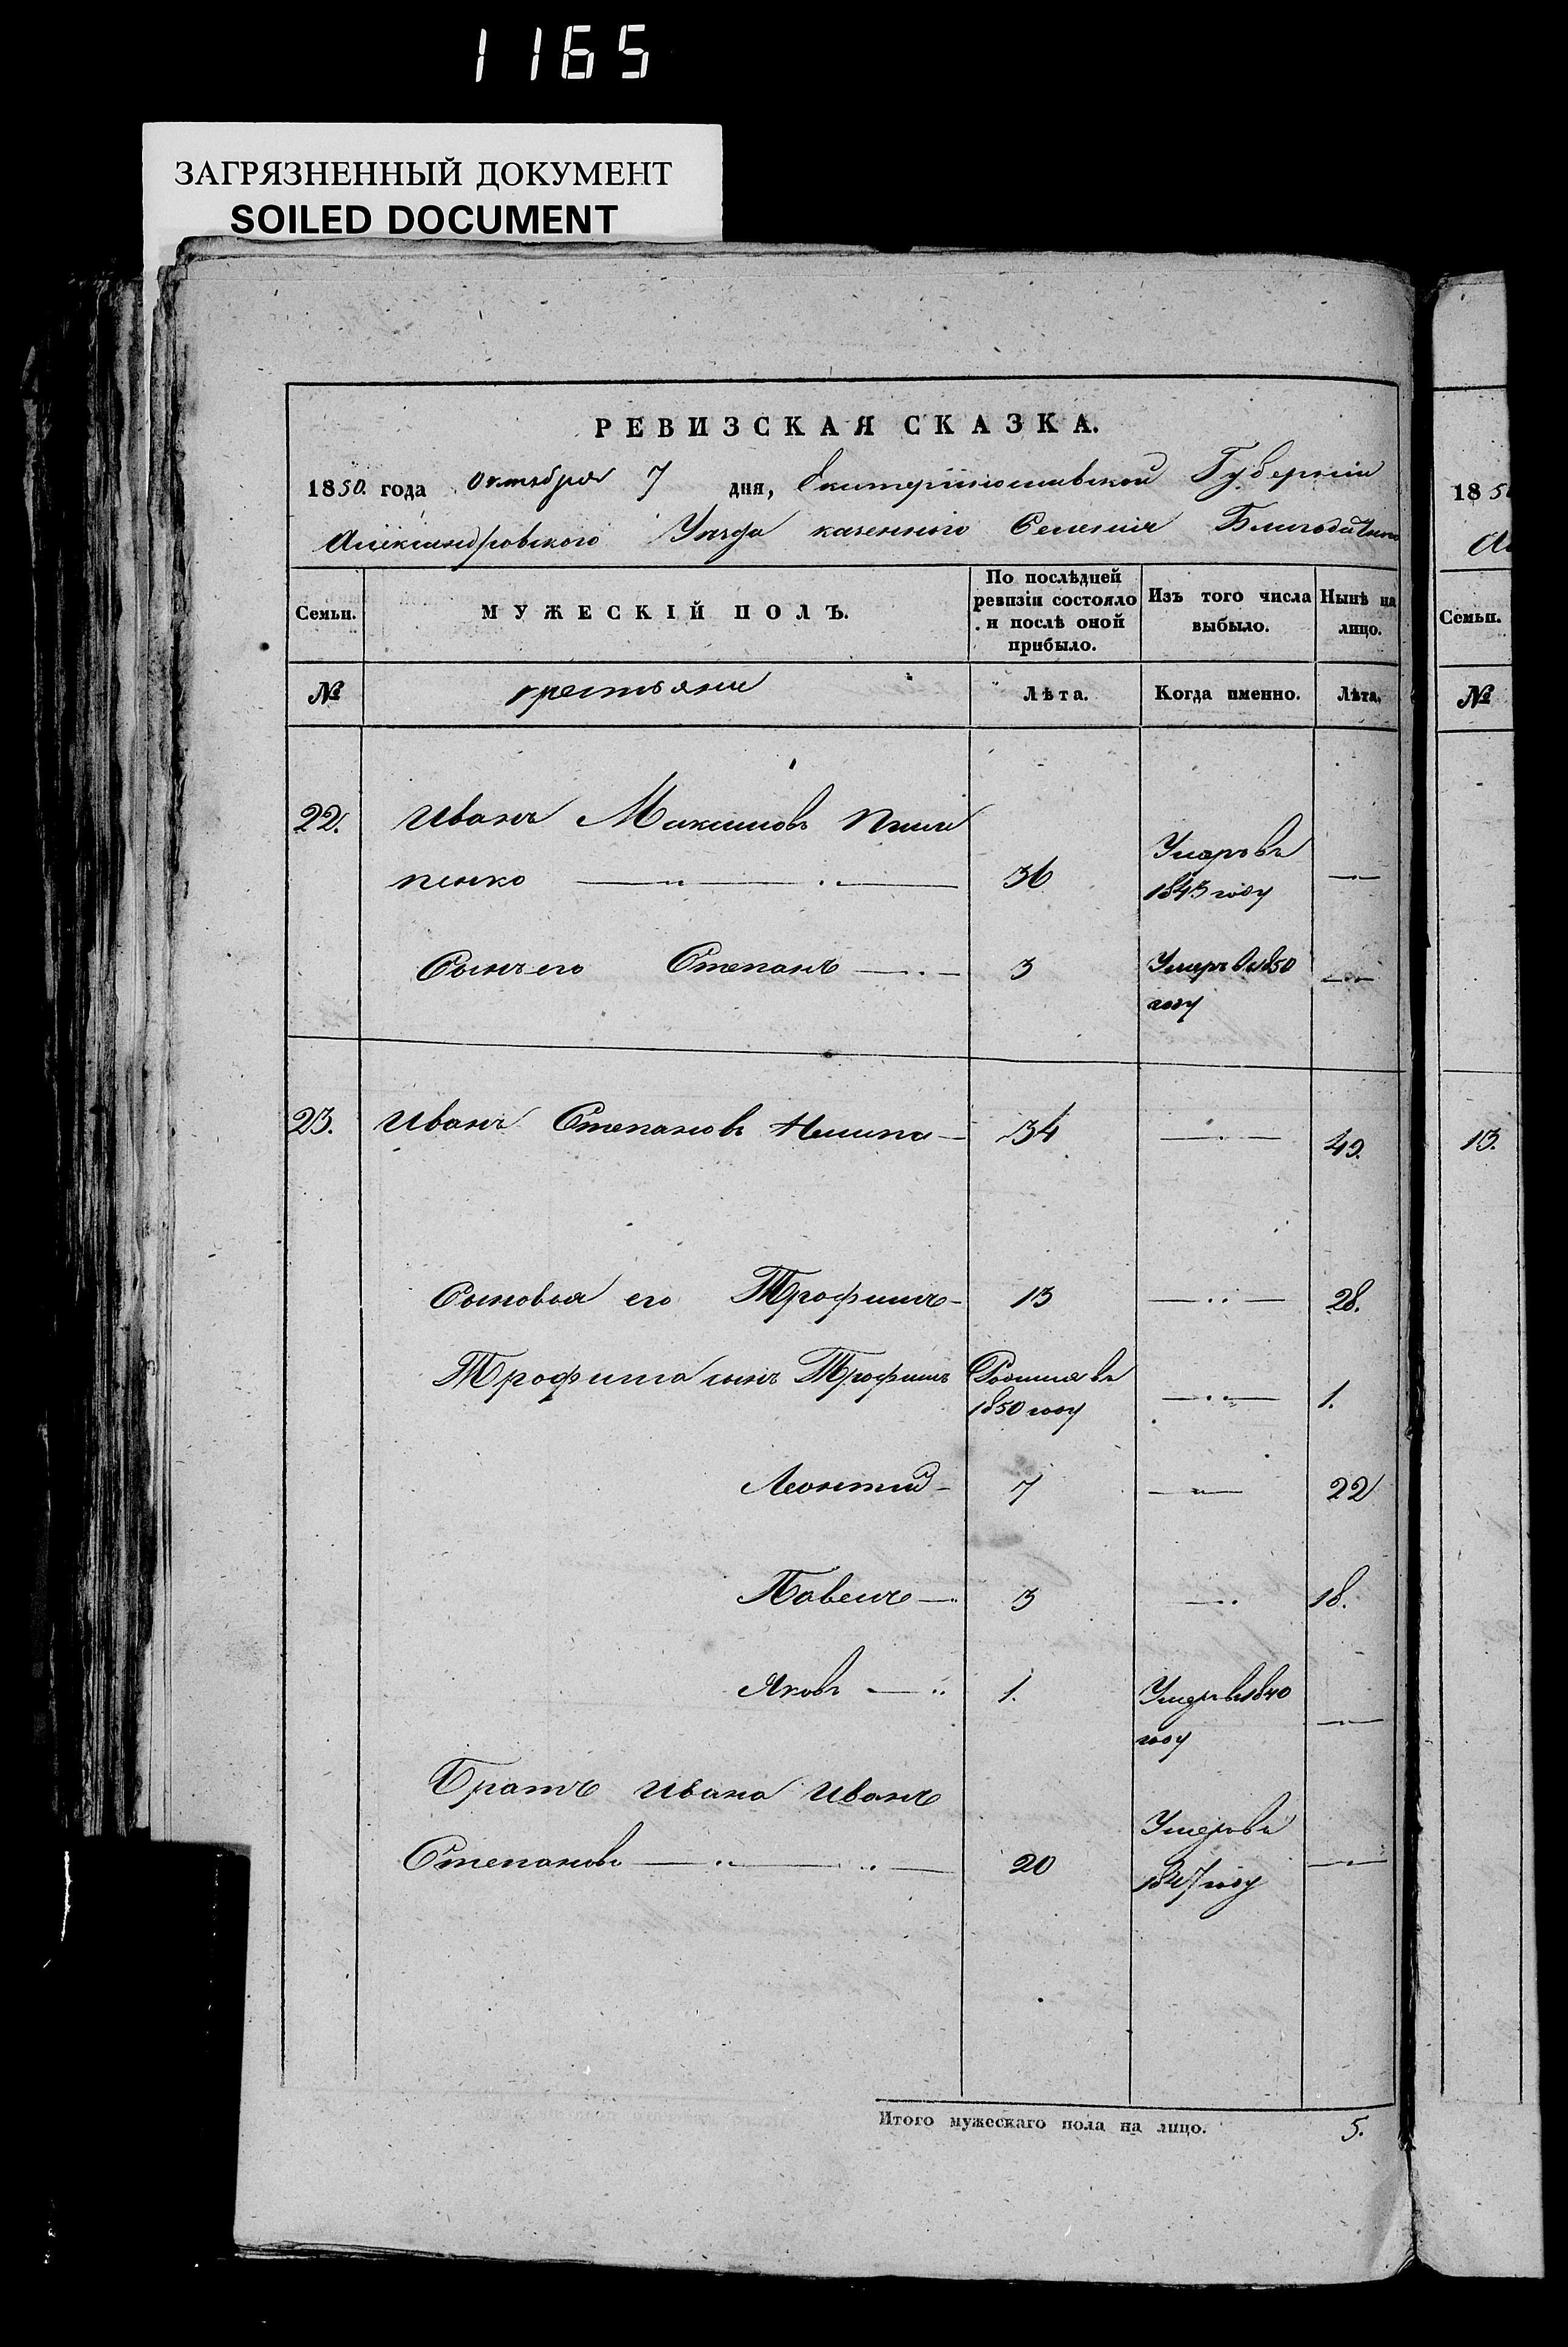 1165
ЗАГРЯЗНЕННЫЙ ДОКУМЕНТ
SOILED DOCUMENT
РЕВИЗСКАЯ СКАЗКА.
1850. года Октября 7 дня, Екатеринославской Губернии
Александровского Уезда казенного Селения
Семьи. МУЖЕСКІЙ ПОЛЪ. По послѣдней ревизіи состояло и послѣ оной прибыло. Изъ того числа выбыло. Нынѣ на лицо.
№ крестьяне Лѣта. Когда именно. Лѣта.
22. Иванъ Максимовъ
пенко 36 Умеръ въ 1843 году —
Сынъ его Степанъ 3 Умеръ в 1850 году —
23. Иванъ Степановъ 34 — 49.
Сыновья его Трофимъ 13 — 28.
Трофима сынъ Трофимъ Родился въ 1850 году — 1.
Леонтий 7 — 22
Павелъ 3 — 18.
Яковъ 1. Умеръ в 1840 году —
Братъ Ивана Иванъ
Степановъ 20 Умеръ въ 1847 году —
Итого мужескаго пола на лицо. 5.
18 5
Семьи.
№
13.